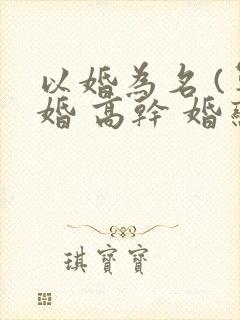 以婚為名(
婚 高幹 婚
琪寶寶